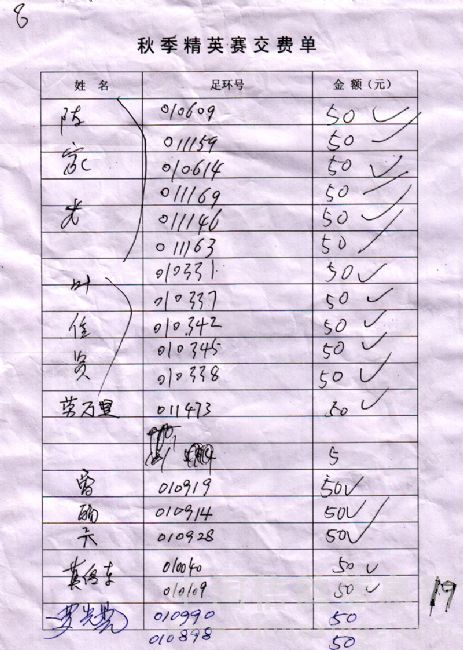 8
秋季精英赛交费单
姓 名 足环号 金 额（元）
陈 010609 50
011159 50
家 010614 50
011169 50
光 011146 50
011163 50
叶 010331 50
010337 50
佳 010342 50
010345 50
贤 010338 50
万里 011473 50
5
雷 010919 50
010914 50
天 010928 50
黄 010040 50
010109 50
罗 010990 50
010898 50
19